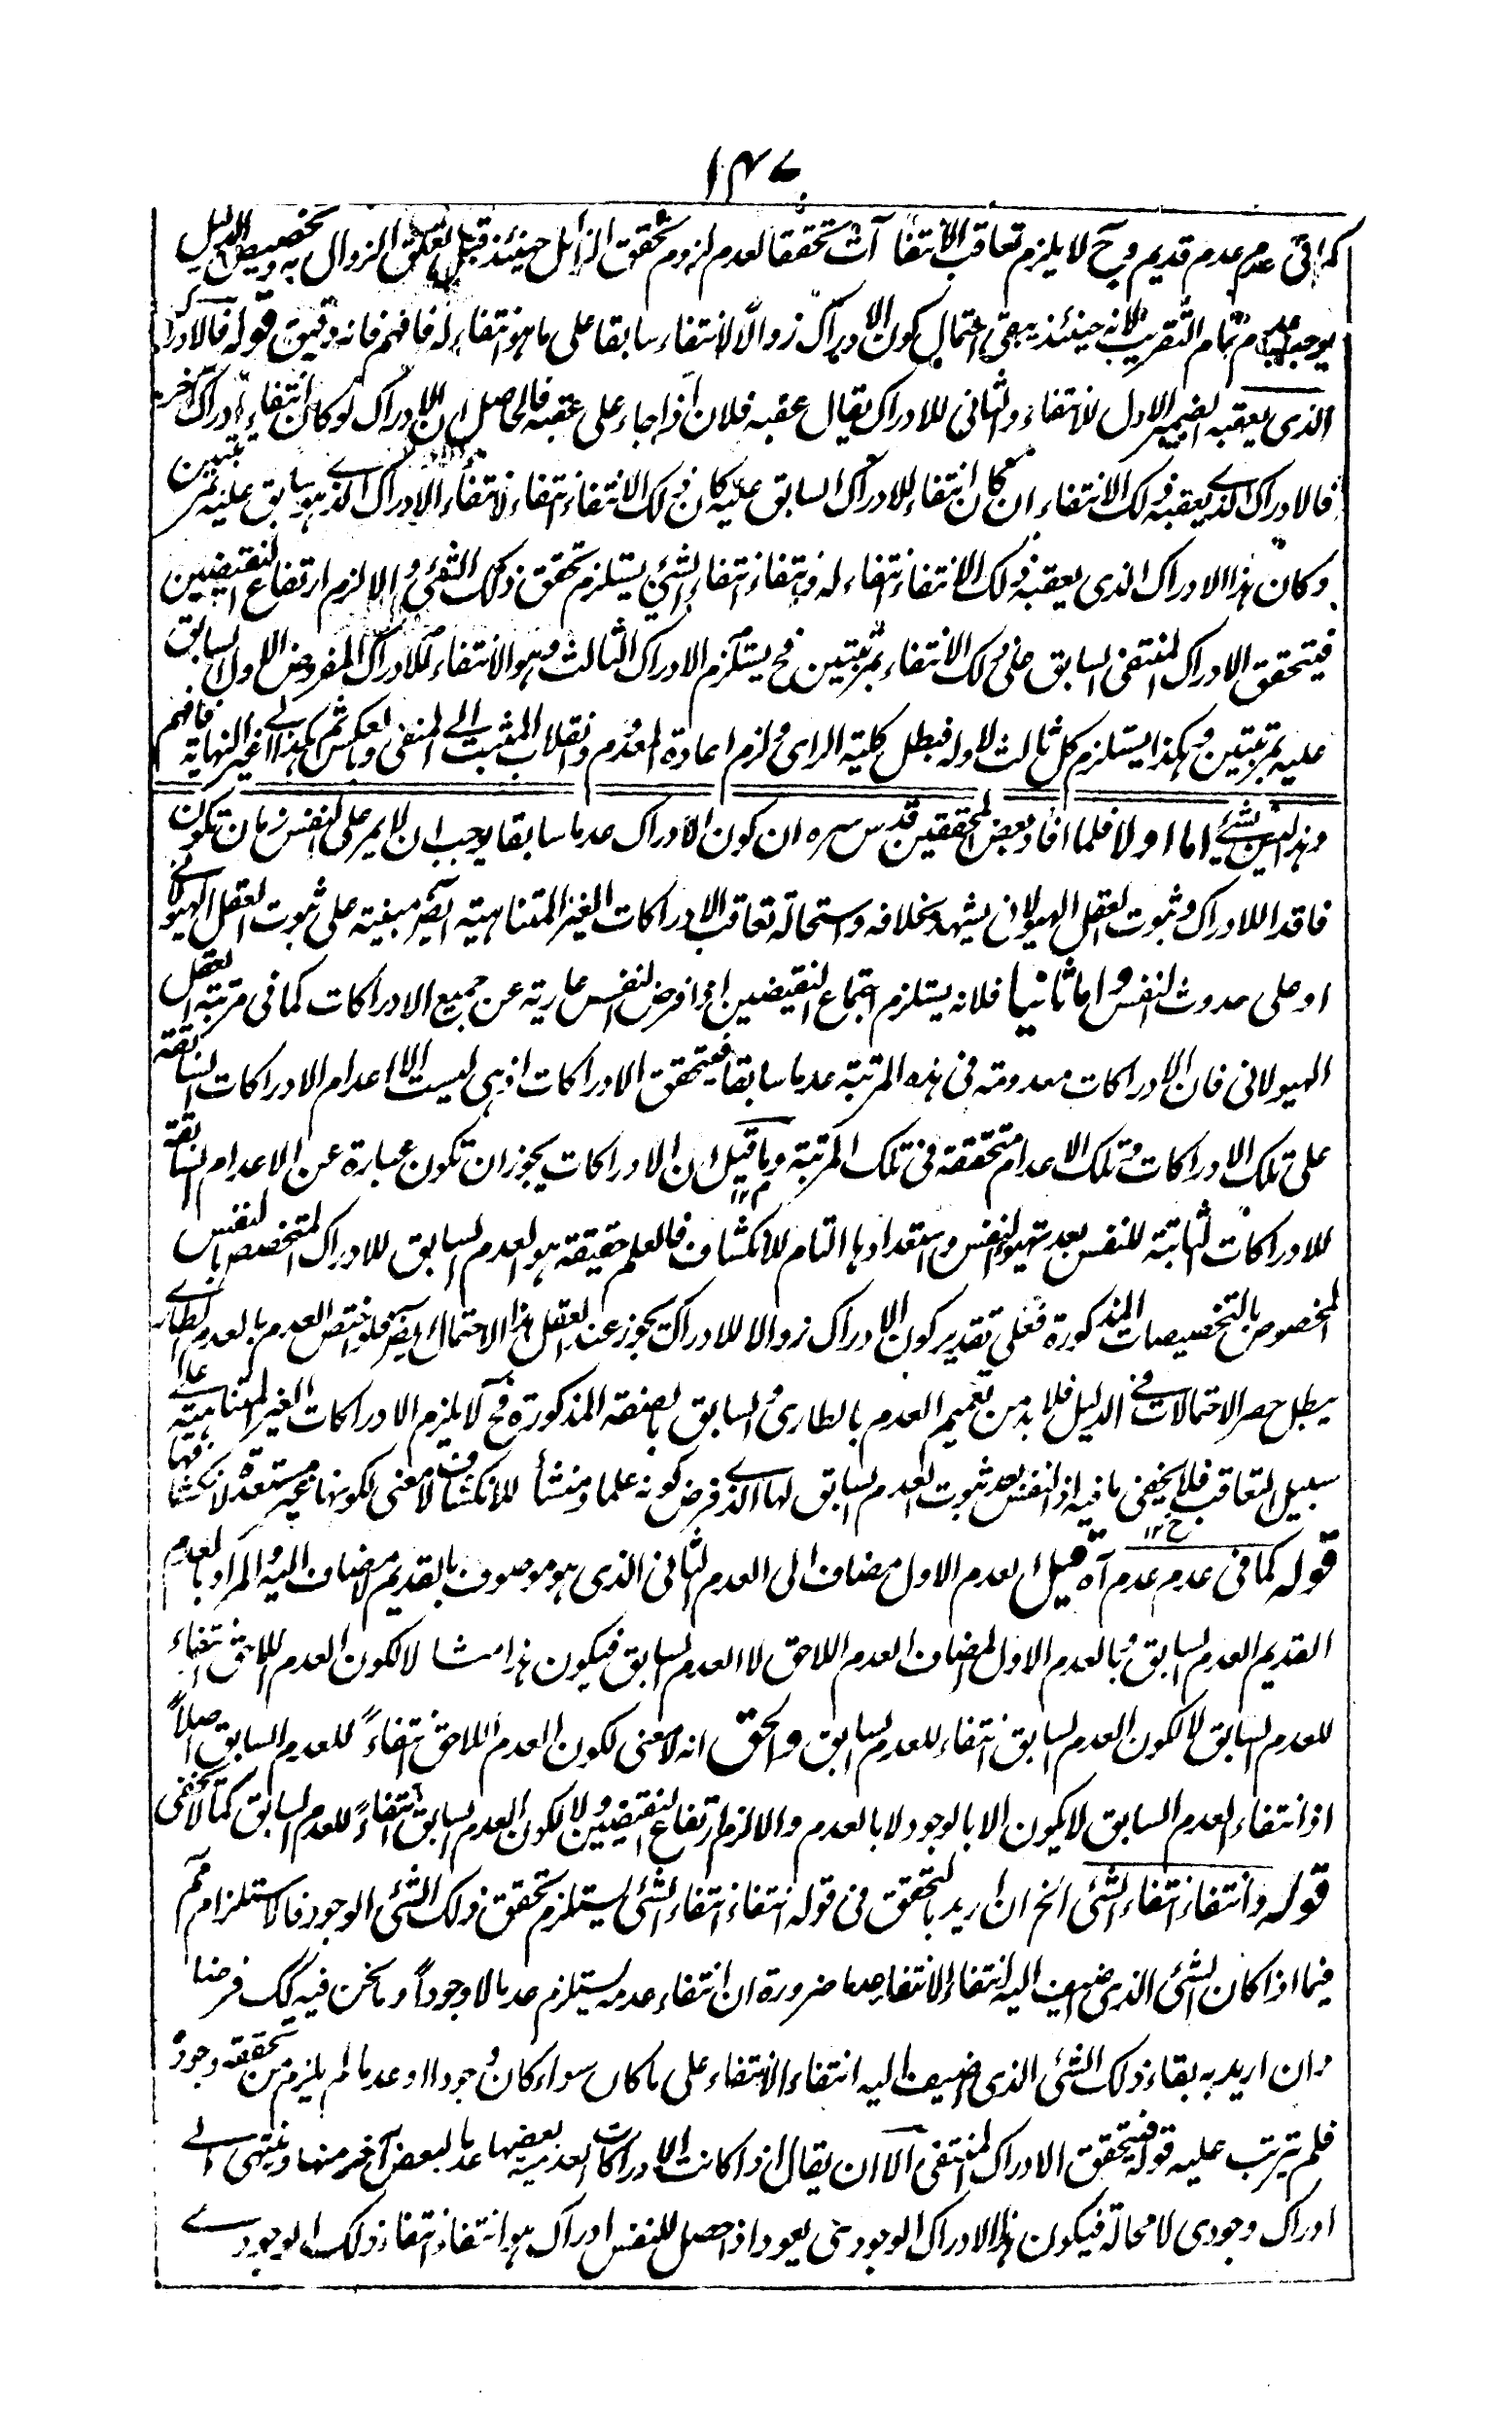 ١٤٧
كما في عدم عدم قديم وح لا يلزم تعاقب الانتفاآت تحققا لعدم لزوم تحقق الزائل حينئذ قبل تعلق الزوال به وتخصيص الدليل
يوجب عدم تمام التقريب لانه حينئذ يبقى احتمال كون الادراك زوالا لانتفاء سابقا على ما هو انتفاء له فافهم فانه دقيق قوله فالادراك
الذى يعقبه الضمير الاول للانتفاء والثانى للادراك يقال عقبه فلان اذا جاء على عقبه فالحاصل ان الادراك لو كان انتفاء ادراك آخر
فالادراك الذي يعقبه ذلك الانتفاء ان كان انتفاء للادراك السابق عليه كان ذلك الانتفاء انتفاء لانتفاء الادراك الذي هو سابق عليه بمرتبتين
وكان هذا الادراك الذى يعقبه ذلك الانتفاء انتفاء له وانتفاء انتفاء الشئ يستلزم تحقق ذلك الشئ والا لزم ارتفاع النقيضين
فيتحقق الادراك المنتفى السابق على ذلك الانتفاء بمرتبتين فح يستلزم الادراك الثالث وهو الانتفاء للادراك المفروض الاول السابق
عليه بمرتبتين وهكذا يستلزم كل ثالث لاوله فبطل كلية الراى ولزم اعادة المعدوم وانقلاب المثبت الى المنفى وبالعكس ثم هكذا الى غير النهاية فافهم
وهذا ليس بشئ اما اولا فلما افاد بعض المحققين قدس سره ان كون الادراك عدما سابقا يوجب ان لا يمر على النفس زمان تكون
فاقدا للادراك وثبوت العقل الهيولانى يشهد بخلافه واستحالة تعاقب الادراكات الغير المتناهية ايضا مبنية على ثبوت العقل الهيولانى
او على حدوث النفس واما ثانيا فلانه يستلزم اجتماع النقيضين اذا فرض النفس عارية عن جميع الادراكات كما فى مرتبة العقل
الهيولانى فان الادراكات معدومة فى هذه المرتبة عدما سابقا فيتحقق الادراكات اذ هى ليست الا اعدام الادراكات السابقة
على تلك الادراكات وتلك الاعدام متحققة فى تلك المرتبة وما قيل ان الادراكات يجوز ان تكون عبارة عن الاعدام السابقة
للادراكات الثابتة للنفس بعد تهيؤ النفس واستعدادها التام للانكشاف فالعلم حقيقة هو العدم السابق للادراك المتخصص بالنفس
المخصوص بالتخصيصات المذكورة فعلى تقدير كون الادراك زوالا للادراك يجوز عند العقل هذا الاحتمال ايضا فلو اختص العدم بالعدم الطارى
يبطل حصر الاحتمالات فى الدليل فلا بد من تعميم العدم بالطارى والسابق بالصفة المذكورة فح لا يلزم الادراكات الغير المتناهية على
سبيل التعاقب فلا يخفى ما فيه اذ النفس بعد ثبوت العدم السابق لها الذي فرض كونه علما ومنشأ للانكشاف لا معنى لكونها غير مستعدة لانكشافها
قوله كما فى عدم عدم آه قيل العدم الاول مضاف الى العدم الثانى الذى هو موصوف بالقديم لا مضاف اليه والمراد بالعدم
القديم العدم السابق وبالعدم الاول المضاف العدم اللاحق لا العدم السابق فيكون هذا مثالا لكون العدم اللاحق انتفاء
للعدم السابق لا لكون العدم السابق انتفاء للعدم السابق والحق انه لا معنى لكون العدم اللاحق انتفاءً للعدم السابق اصلاً
اذ انتفاء العدم السابق لا يكون الا بالوجود لا بالعدم والا لزم ارتفاع النقيضين ولا لكون العدم السابق انتفاءً للعدم السابق كما لا يخفى
قوله وانتفاء انتفاء الشئ الخ ان اريد بالتحقق فى قوله انتفاء انتفاء الشئ يستلزم تحقق ذلك الشئ الوجود فالاستلزام مم
فيما اذا كان الشئ الذى اضيف اليه انتفاء الانتفاء عدما ضرورة ان انتفاء عدمه يستلزم عدما لا وجوداً وما نحن فيه كك فرضا
وان اريد به بقاء ذلك الشئ الذى اضيف اليه انتفاء الانتفاء على ما كان سواء كان وجودا او عدما لم يلزم من تحققه وجودٌ
فلم يترتب عليه قوله فيتحقق الادراك المنتفى الا ان يقال اذا كانت الادراكات العدمية بعضها عدما لبعض آخر منها وينتهى الى
ادراك وجودى لا محالة فيكون هذا الادراك الوجودى يعود اذ حصل للنفس ادراك هو انتفاء انتفاء ذلك الوجودى